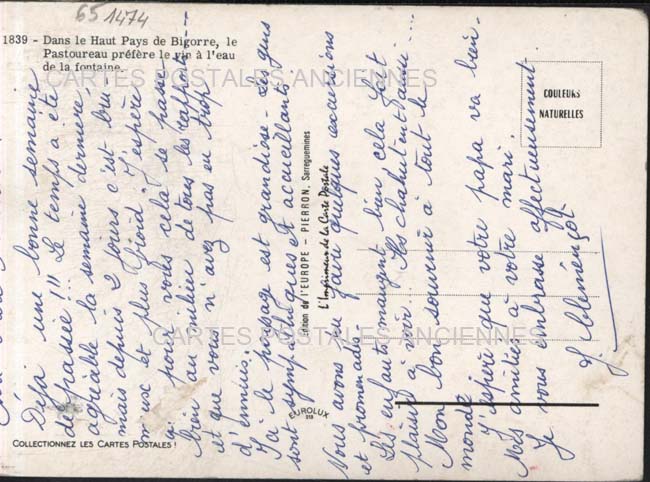 65 1474
1839 - Dans le Haut Pays de Bigorre, le
Pastoureau préfère le vin à l'eau
de la fontaine.
CARTES POSTALES ANCIENNES
COULEURS
NATURELLES
Edition de l'EUROPE - PIERRON, Sarreguemines
L'Imprimeur de la Carte Postale
EUROLUX
CARTES POSTALES ANCIENNES
COLLECTIONNEZ LES CARTES POSTALES !
Déjà une bonne semaine
de passée !!! Le temps a été
agréable la semaine dernière,
mais depuis 2 jours c'est bru-
meux et plus froid. J'espère
que pour vous cela se passe
bien au milieu de tous les
et que vous n'avez pas eu trop
d'ennuis.
Ici le paysage est grandiose - Les gens
sont sympathiques et accueillants
Vous avons pu faire quelques excursions
et promenades.
Les enfants mangent bien cela fait
plaisir à voir... Ils chahutent aussi...
Mon bon souvenir à tout le
monde
J'espère que votre papa va bien.
Mes amitiés à votre mari.
Je vous embrasse affectueusement
J. Clémençot